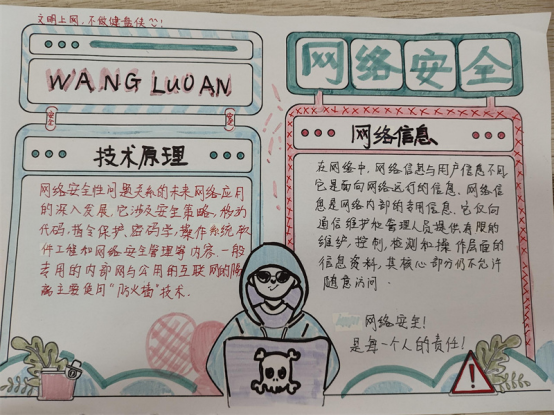 文明上网，不做键盘侠
WANG LUOAN
技术原理
网络安全性问题关系的未来网络应用
的深入发展，它涉及安全策略，移动
代码，指令保护，密码学，操作系统，软
件工程和网络安全管理等内容。一般
专用的内部网与公用的互联网的隔
离主要使用“防火墙”技术。
网络安全
网络信息
在网络中，网络信息与用户信息不同，
它是面向网络运行的信息，网络信
息是网络内部的专用信息，它仅向
通信维护和管理人员提供有限的
维护，控制，检测和操作层面的
信息资料，其核心部分仍不允许
随意访问。
网络安全！
是每一个人的责任！